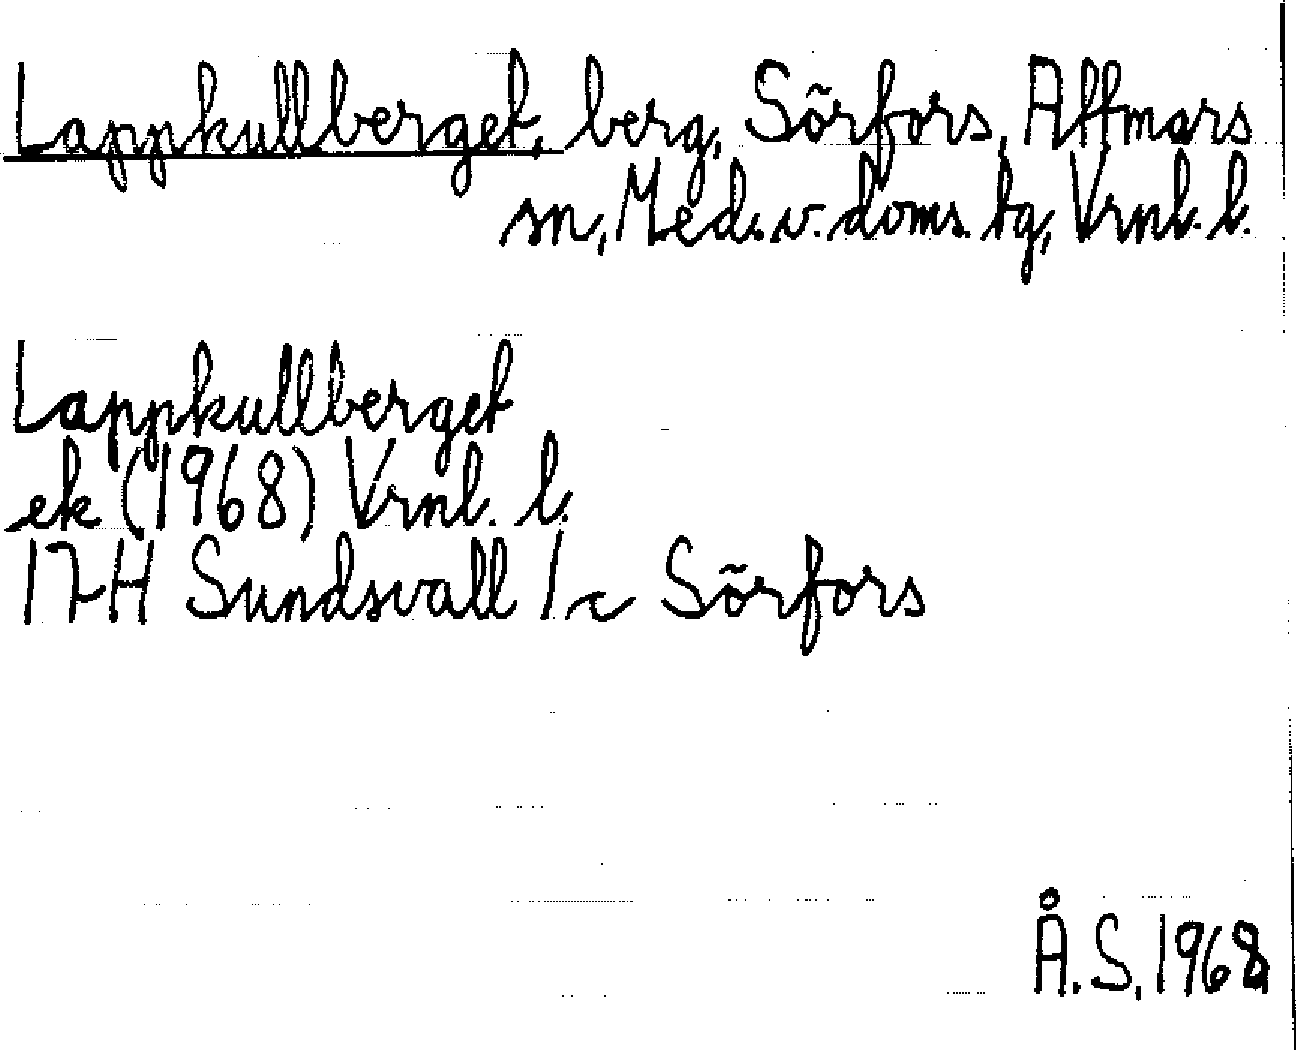 Lappkullberget, berg, Sörfors, Attmars
sn, Med. v. doms. tg, Vrnl. l.
Lappkullberget
ek (1968) Vrnl. l.
17H Sundsvall 1 c Sörfors
Å.S, 1968